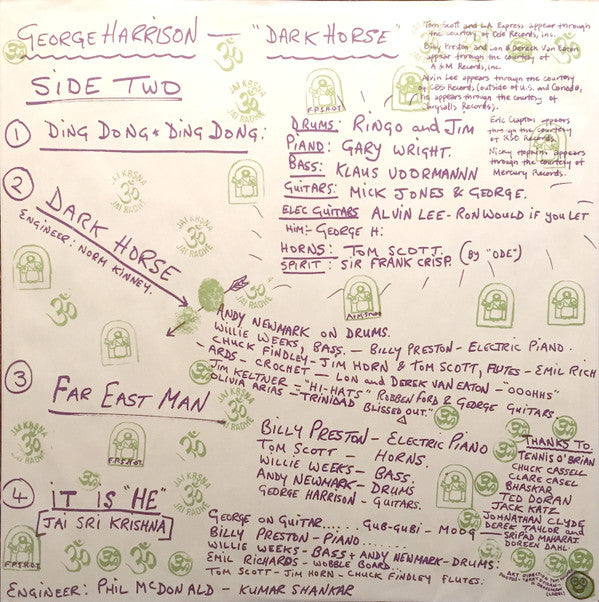 GEORGE HARRISON — "DARK HORSE"
SIDE TWO
Tom Scott and L.A. Express appear through
the courtesy of Ode Records, inc.
Billy Preston and Lon & Dereck Van Eaton
appear through the courtesy of
A & M Records, inc.
Alvin Lee appears through the courtesy
of CBS Records (outside of U.S. and Canada,
he appears through the courtesy of
Chrysalis Records).
Eric Clapton appears
through the courtesy
of RSO Records.
Nicky Hopkins appears
through the courtesy of
Mercury Records.
① DING DONG * DING DONG:
DRUMS: RINGO and JIM
PIANO: GARY WRIGHT.
BASS: KLAUS VOORMANN
GUITARS: MICK JONES & GEORGE.
ELEC GUITARS ALVIN LEE - RON WOULD IF YOU LET
HIM - GEORGE H:
HORNS: TOM SCOTT. (BY "ODE")
SPIRIT: SIR FRANK CRISP.
② DARK HORSE
ENGINEER: NORM KINNEY.
ANDY NEWMARK ON DRUMS.
WILLIE WEEKS, BASS. — BILLY PRESTON - ELECTRIC PIANO.
CHUCK FINDLEY - JIM HORN & TOM SCOTT, FLUTES - EMIL RICH
-ARDS - CROCHET — LON and DEREK VAN EATON - "OOOHHS"
JIM KELTNER - "HI-HATS" ROBBEN FORD & GEORGE GUITARS.
OLIVIA ARIAS - "TRINIDAD BLISSED OUT."
③ FAR EAST MAN
BILLY PRESTON - ELECTRIC PIANO
TOM SCOTT - HORNS.
WILLIE WEEKS - BASS.
ANDY NEWMARK - DRUMS
GEORGE HARRISON - GUITARS.
THANKS TO.
TENNIS O'BRIAN
CHUCK CASSELL
CLARE CASEL
BHASKAR
TED DORAN
JACK KATZ
JOHNATHAN CLYDE
DEREK TAYLOR and
SRIPAD MAHARAJ.
DOREEN DAHL.
④ IT IS "HE"
JAI SRI KRISHNA
GEORGE ON GUITAR...... GUB-GUBI - MOOG
BILLY PRESTON - PIANO........
WILLIE WEEKS - BASS + ANDY NEWMARK - DRUMS:
EMIL RICHARDS - WOBBLE BOARD.
TOM SCOTT - JIM HORN - CHUCK FINDLEY FLUTES:
ENGINEER: PHIL McDONALD - KUMAR SHANKAR
JAI KRSNA
ॐ
JAI RADHE
F.P.S.H.O.T.